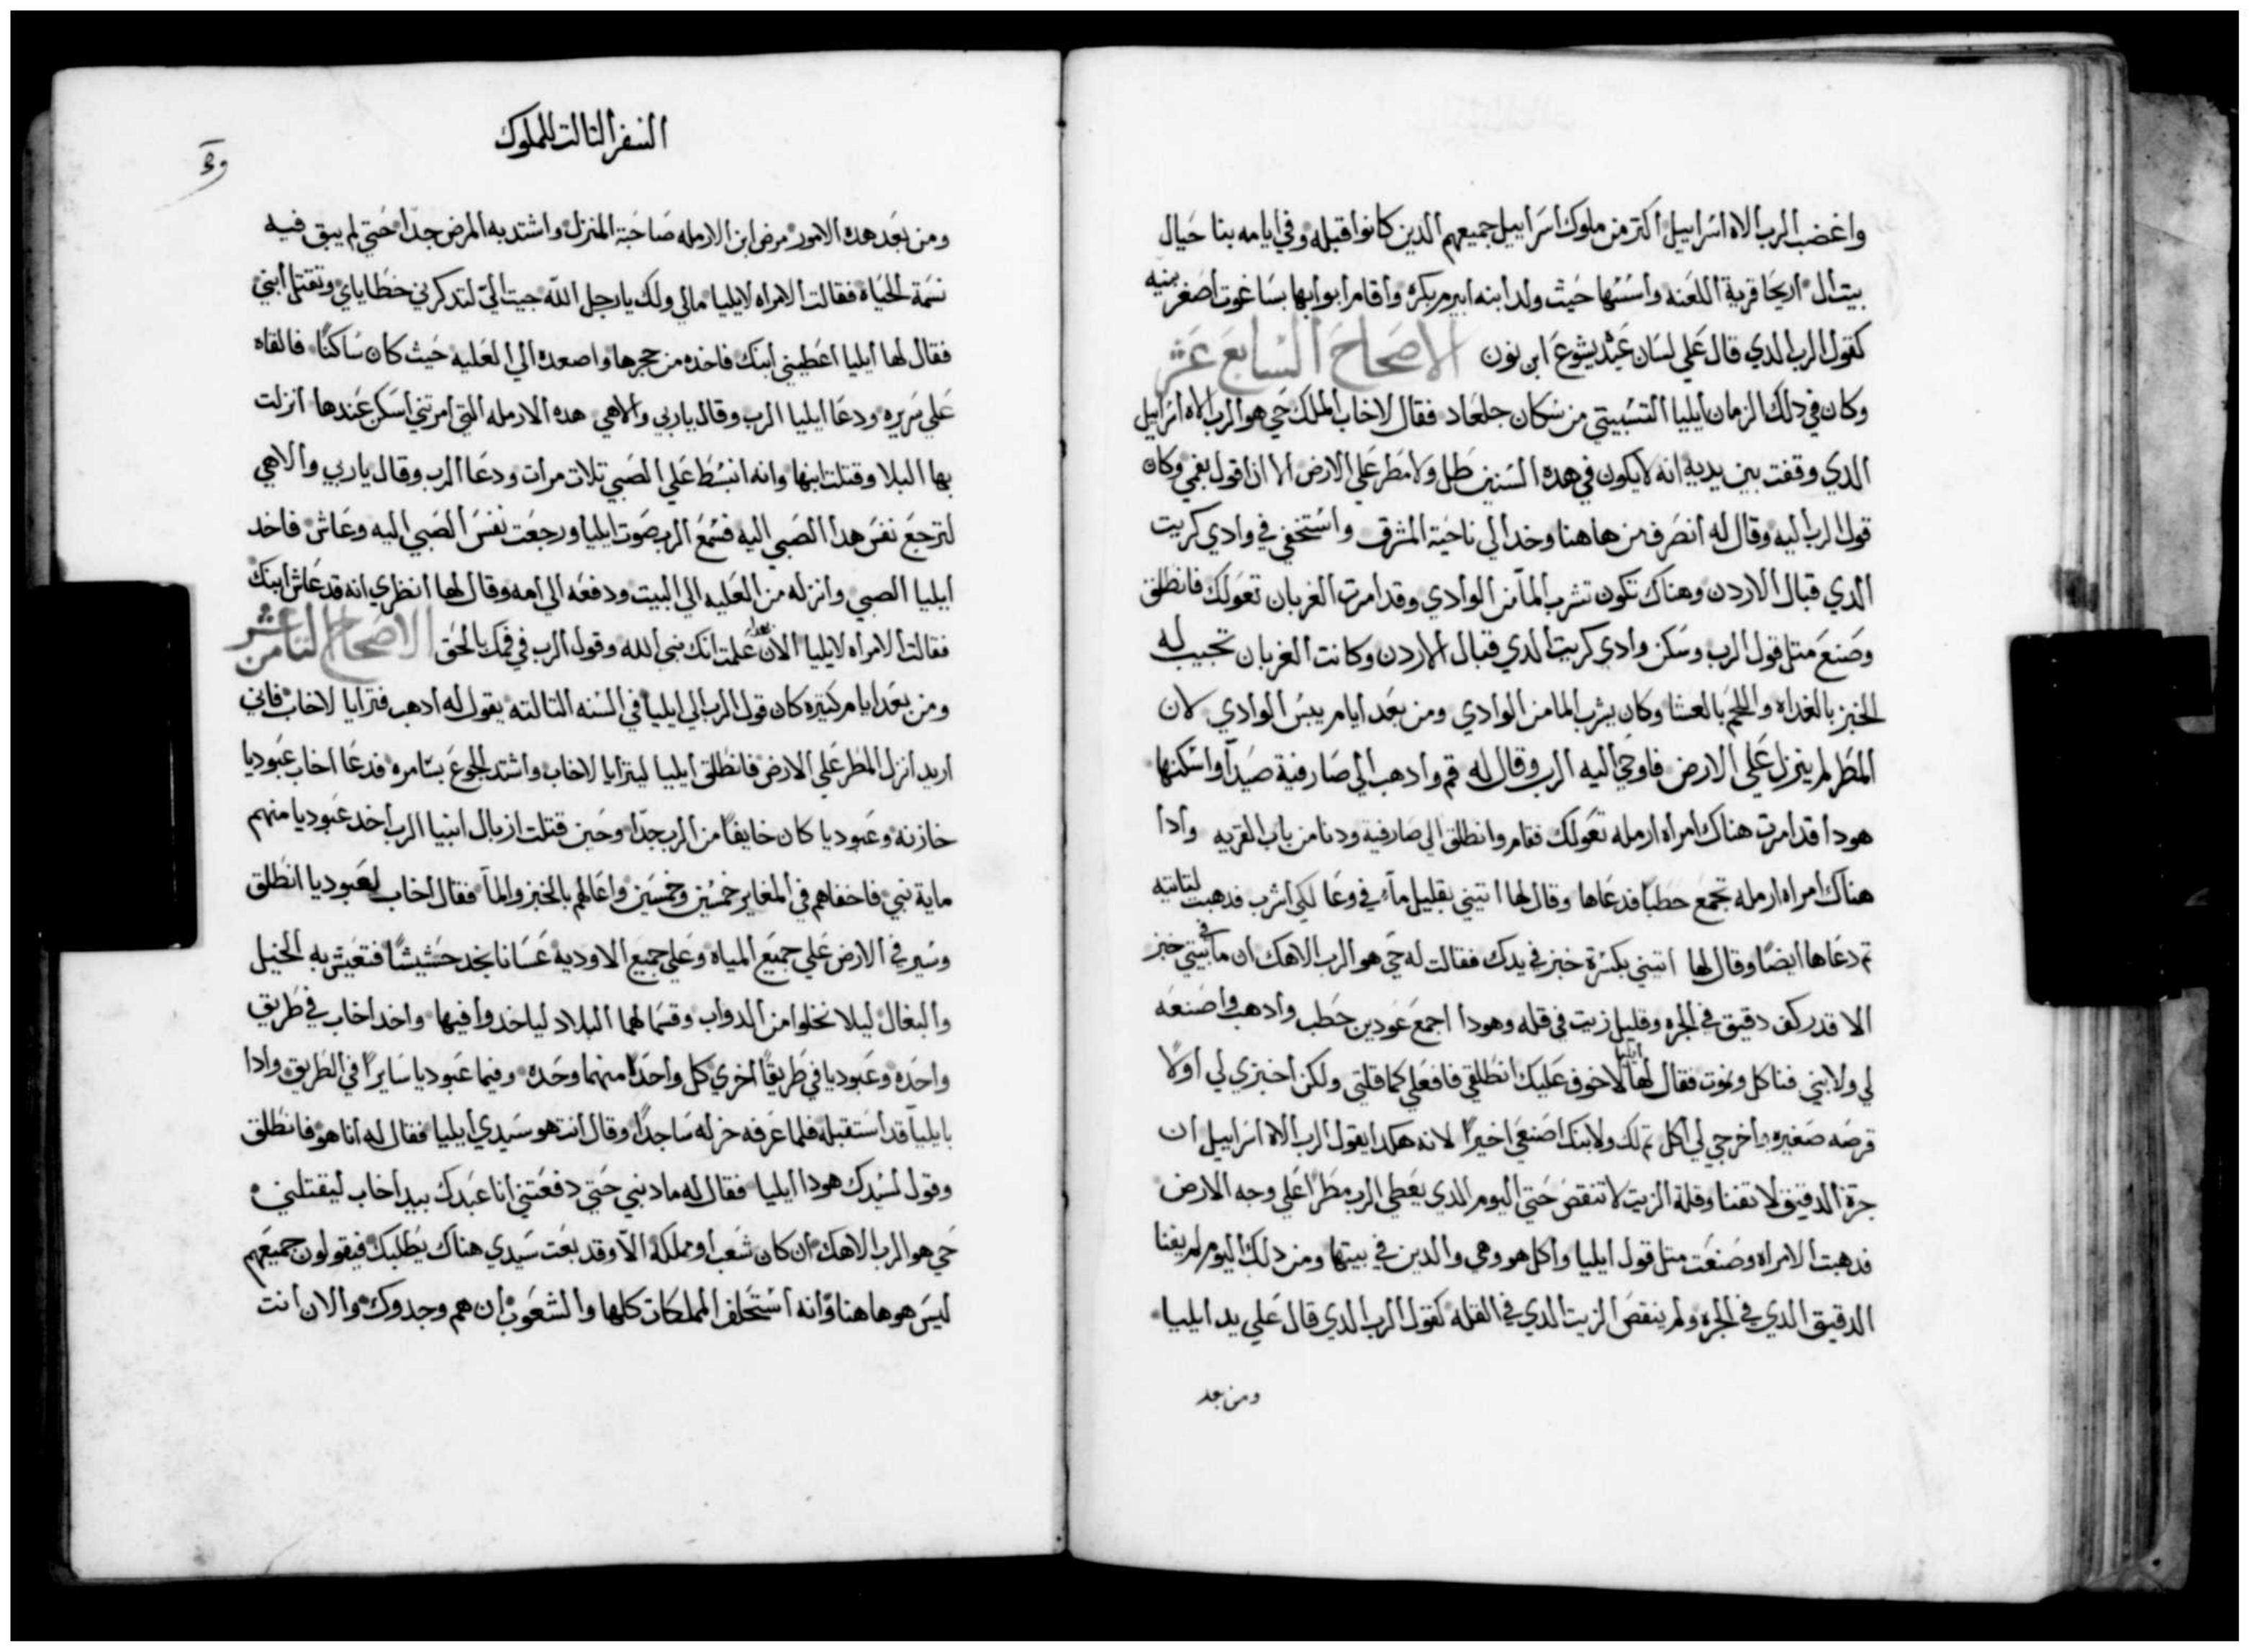 واغضب الرب الاه اسراييل اكتر من ملوك اسراييل جميعهم الدين كانوا قبله وفي ايامه بنا حيال
بيت ال اريحا قرية اللعنه واسسها حيث ولد ابنه ابيرم بكره واقام ابوابها بساغوت اصغر بنيه
كقول الرب الدي قال علي لسان عبد يشوع ابن نون الاصحاح السابع عشر
وكان في دلك الزمان ايليا التسبيتي من سكان جلعاد فقال لاخاب الملك حي هو الرب الاه اسراييل
الدي وقفت بين يديه انه لا يكون في هده السنين طل ولا مطر علي الارض الا ان اقول بفمي وكان
قول الرب اليه وقال له انصرف من هاهنا وخد الي ناحية المشرق واستخفي في وادي كريت
الدي قبال الاردن وهناك تكون تشرب المآ من الوادي وقد امرت الغربان تعولك فانطلق
وصنع متل قول الرب وسكن وادي كريت الدي قبال الاردن وكانت الغربان تجيب له
الخبز بالغداه واللحم بالعشا وكان يشرب الما من الوادي ومن بعد ايام يبس الوادي لان
المطر لم ينزل علي الارض فاوحي اليه الرب وقال له قم وادهب الي صارفية صيدآ واسكنها
هودا قد امرت هناك امراه ارمله تعولك فقام وانطلق الي صارفية ودنا من باب القريه وادا
هناك امراه ارمله تجمع حطبا فدعاها وقال لها اتيني بقليل مآء في وعا لكي اشرب فدهبت لتاتيه
تم دعاها ايضا وقال لها اتيني بكسرة خبز في يدك فقالت له حي هو الرب الاهك ان ما في بيتي خبز
الا قدر كف دقيق في الجره وقليل زيت في قله وهودا اجمع عودين حطب وادهب واصنعه
لي ولابني فناكل ونموت فقال لها ايليا لا خوف عليك انطلقي فافعلي كما قلتي ولكن اخبزي لي اولا
قرصه صغيره واخرجي لي اكل تم لك ولابنك اصنعي اخيرا لانه هكدا يقول الرب الاه اسراييل ان
جرة الدقيق لا تفنا وقلة الزيت لا تنقص حتي اليوم الدي يعطي الرب مطرا علي وجه الارض
فدهبت الامراه وصنعت متل قول ايليا واكل هو وهي والدين في بيتها ومن دلك اليوم لم يفنا
الدقيق الدي في الجره ولم ينقص الزيت الدي في القله كقول الرب الدي قال علي يد ايليا
ومن بعد
السفر التالت للملوك
ومن بعد هده الامور مرض ابن الارمله صاحبة المنزل واشتد به المرض جدا حتي لم يبق فيه
نسمة الحياة فقالت الامراه لايليا مالي ولك يا رجل الله جيت الي لتدكرني خطاياي وتقتل ابني
فقال لها ايليا اعطيني ابنك فاخده من حجرها واصعده الي العليه حيث كان ساكنا فالقاه
علي سريره ودعا ايليا الرب وقال ياربي والاهي هده الارمله التي امرتني اسكن عندها انزلت
بها البلا وقتلت ابنها وانه انبسط علي الصبي تلات مرات ودعا الرب وقال ياربي والاهي
لترجع نفس هدا الصبي اليه فسمع الرب صوت ايليا ورجعت نفس الصبي اليه وعاش فاخد
ايليا الصبي وانزله من العليه الي البيت ودفعه الي امه وقال لها انظري انه قد عاش ابنك
فقالت الامراه لايليا الان علمت انك نبي الله وقول الرب في فمك بالحق الاصحاح التامن عشر
ومن بعد ايام كتيره كان قول الرب الي ايليا في السنه التالته يقول له ادهب فترايا لاخاب فاني
اريد انزل المطر علي الارض فانطلق ايليا ليترايا لاخاب واشتد الجوع بسامره فدعا اخاب عبوديا
خازنه وعبوديا كان خايفا من الرب جدا وحين قتلت ازبال انبيا الرب اخد عبوديا منهم
ماية نبي فاخفاهم في المغاير خمسين وخمسين واعالهم بالخبز والمآ فقال اخاب لعبوديا انطلق
وسير في الارض علي جميع المياه وعلي جميع الاوديه عسانا نجد حشيشا فتعيش به الخيل
والبغال ليلا نخلوا من الدواب وقسما لهما البلاد لياخدوا فيها واخد اخاب في طريق
واحده وعبوديا في طريقا اخري كل واحدا منهما وحده وفيما عبوديا سايرا في الطريق وادا
بايليا قد استقبله فلما عرفه خر له ساجدا وقال انت هو سيدي ايليا فقال له انا هو فانطلق
وقول لسيدك هودا ايليا فقال له ما دنبي حتي دفعتني انا عبدك بيد اخاب ليقتلني
حي هو الرب الاهك ان كان شعب او مملكه الا وقد بعت سيدي هناك يطلبك فيقولون جميعهم
ليس هو هاهنا وانه استحلف المملكات كلها والشعوب ان هم وجدوك والان انت